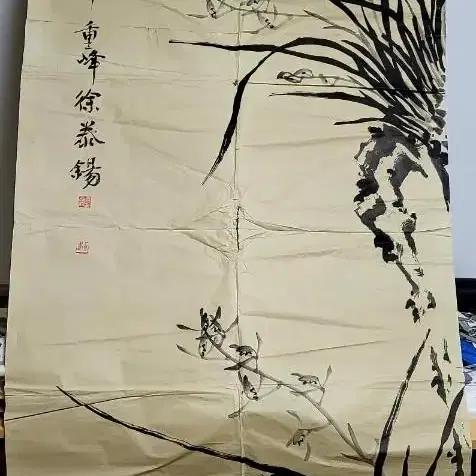 重峰徐泰錫